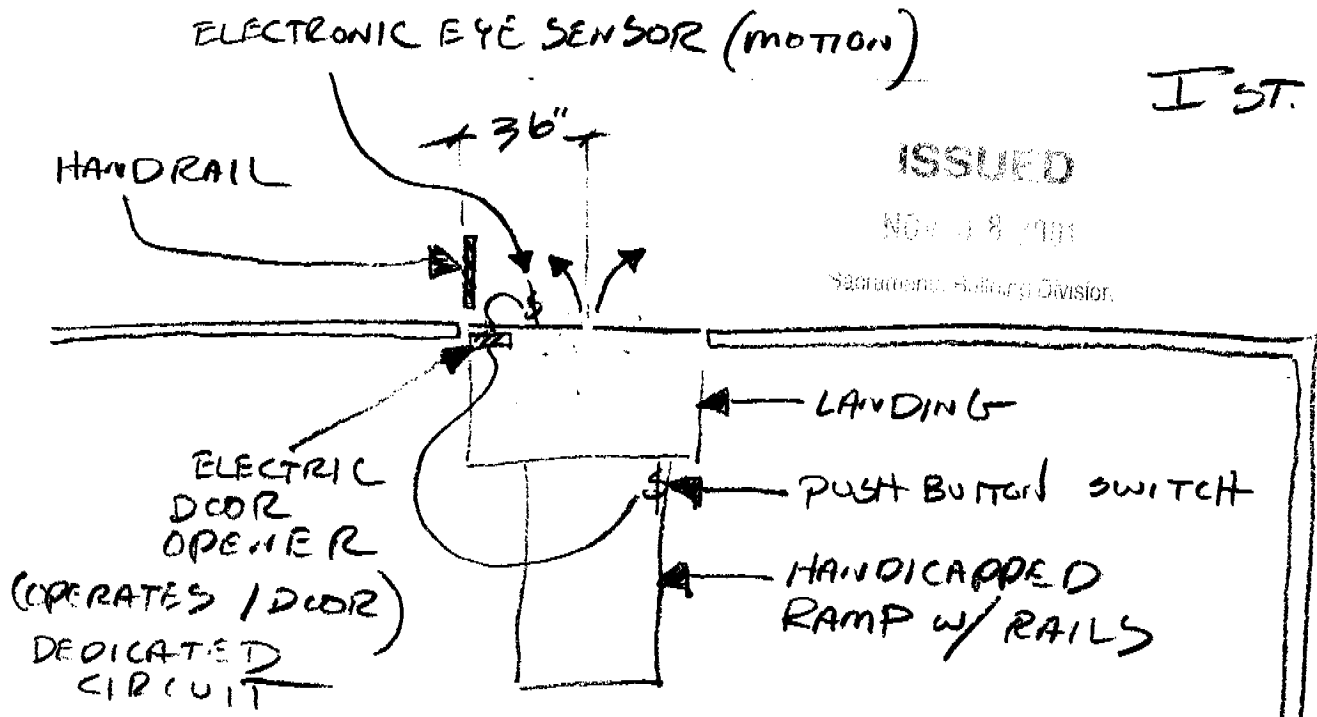 ELECTRONIC EYE SENSOR (MOTION)
I ST.
36"
HANDRAIL
ISSUED
NOV 8
Sacramento Building Division
$
LANDING
ELECTRIC
DOOR
OPENER
(OPERATES 1 DOOR)
DEDICATED
CIRCUIT
$
PUSH BUTTON SWITCH
HANDICAPPED
RAMP W/ RAILS